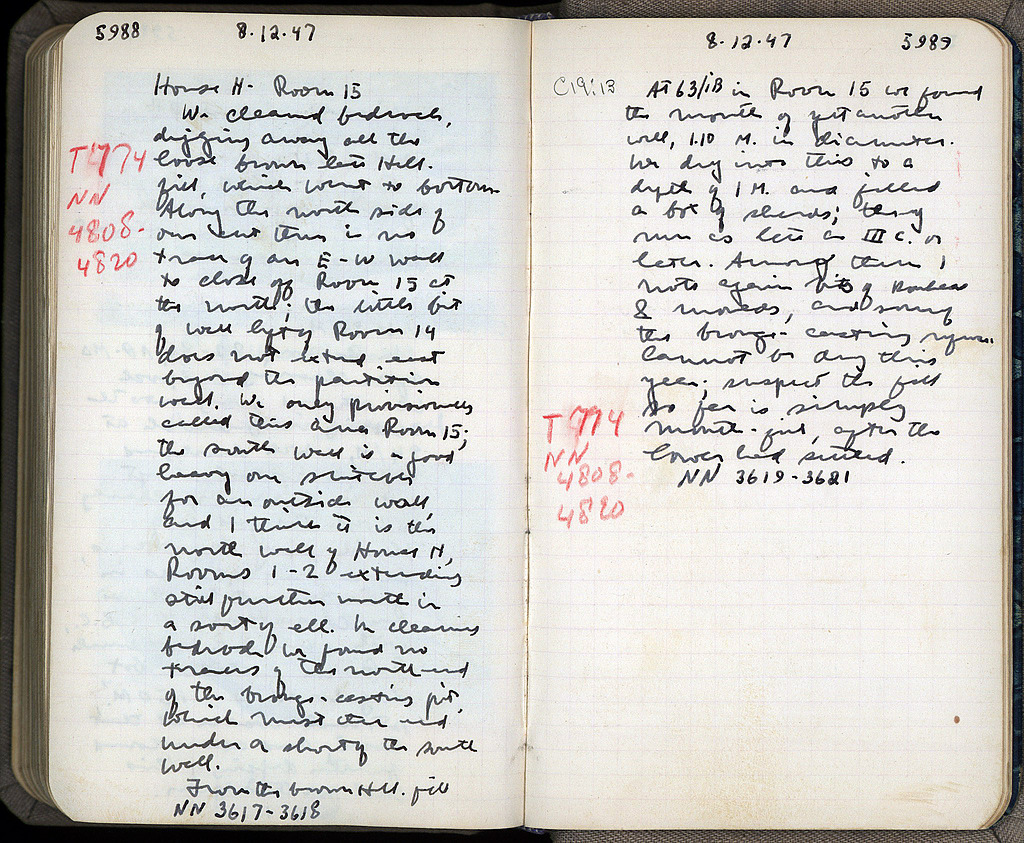 5988
8.12.47
House H. Room 15
We cleaned bedrock,
digging away all the
loose brown late Hell.
fill, which went to bottom.
Along the north side of
our cut there is no
trace of an E-W wall
to close off Room 15 at
the north; the little bit
of wall betw Room 14
does not extend east
beyond the partition
wall. We only provisionally
called this area Room 15;
the south wall is a good
heavy one suitable
for an outside wall,
and I think it is the
north wall of House H,
Rooms 1-2 extending
still further north in
a sort of ell. In cleaning
bedrock we found no
traces of the north end
of the bronze-casting pit,
which must then end
under or short of the south
wall.
From the brown Hell. fill
NN 3617-3618
T 1774
NN
4808-
4820
8.12.47
5989
C19:13
At 63/ΙΒ in Room 15 we found
the mouth of yet another
well, 1.10 M. in diameter.
We dug into this to a
depth of 1 M. and filled
a box of sherds; they
run as late as III c. or
later. Among them I
note again bits of
& moulds, and so
the bronze-casting
cannot be any this
year; suspect the fill
so far is simply
mouth-fill, after the
lower had settled.
NN 3619-3621
T 1774
NN
4808-
4820